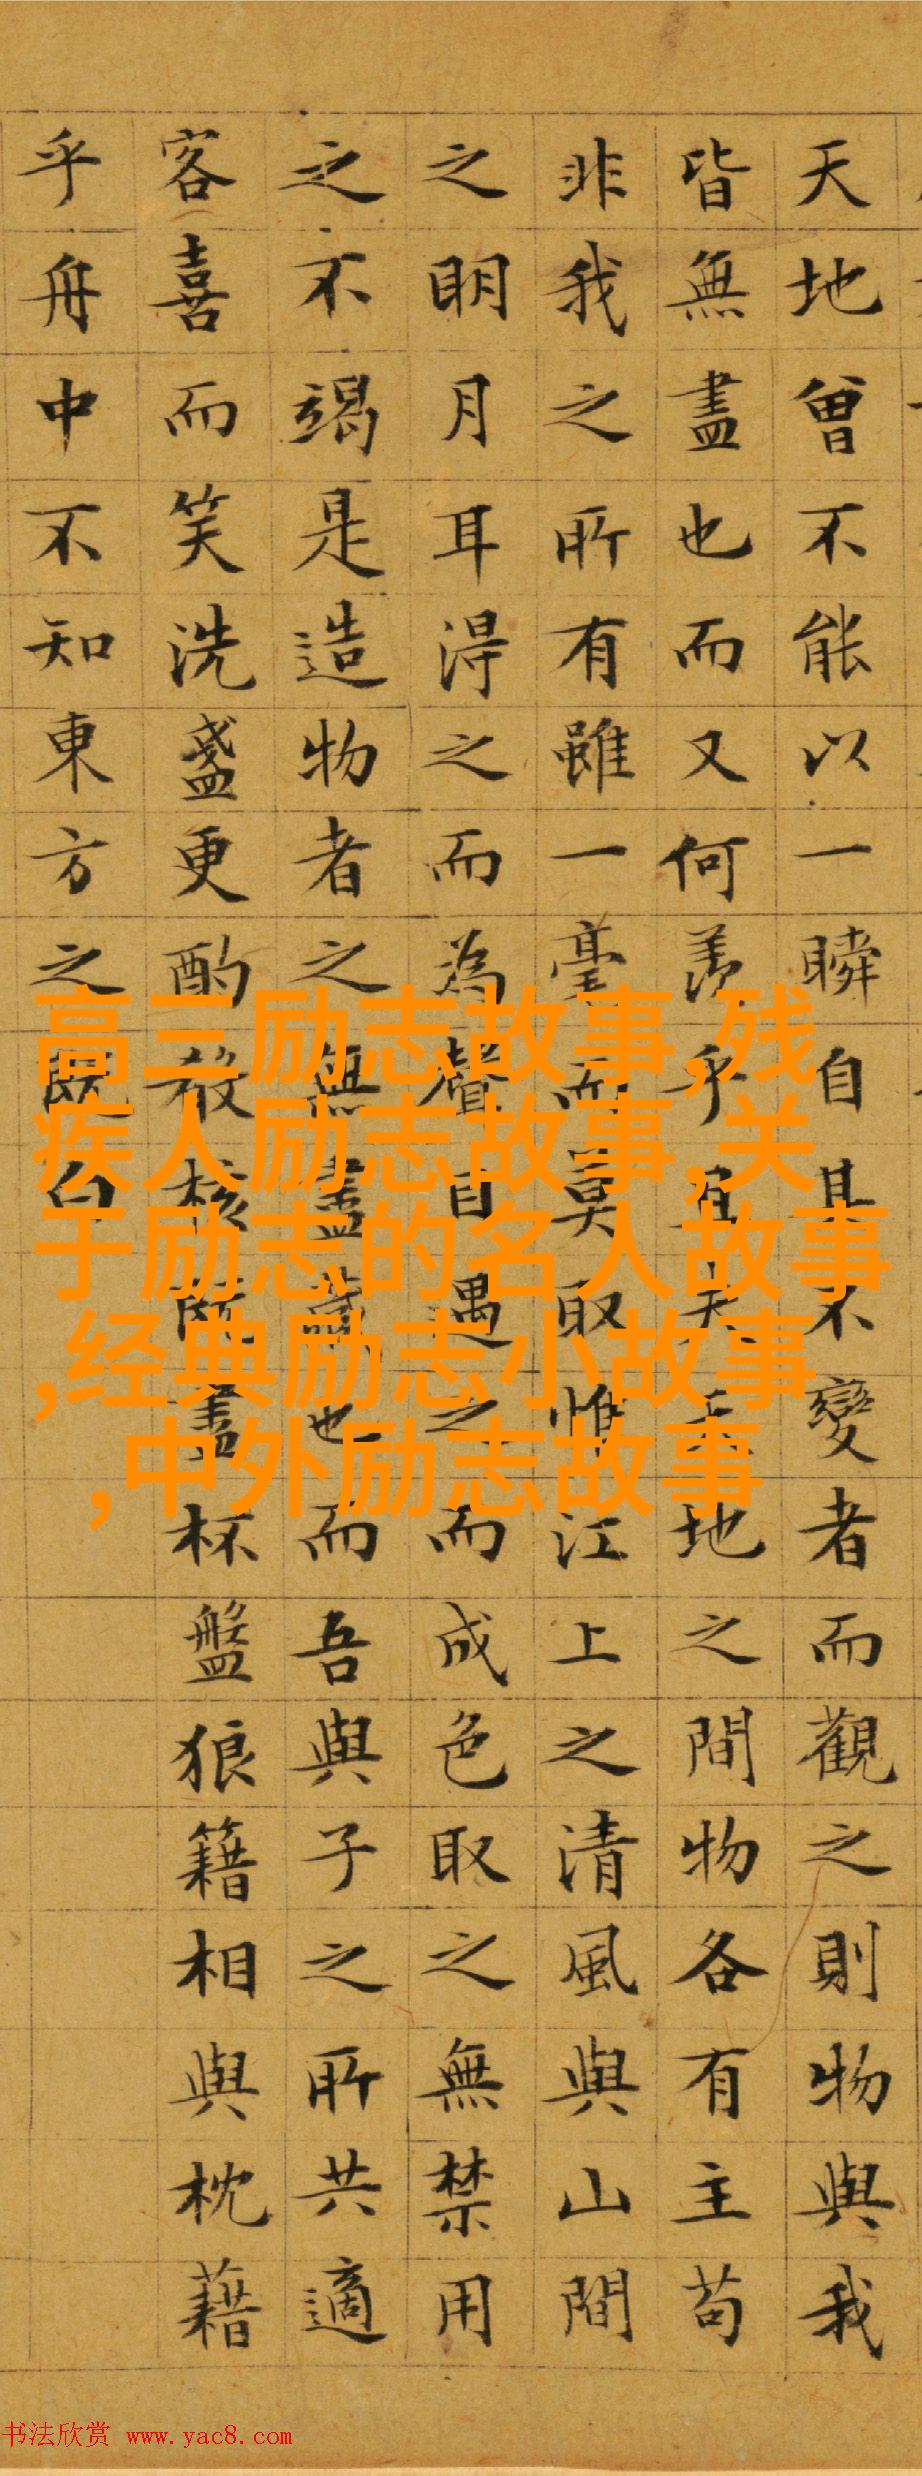 天地曾不能以一瞬自其不變者而觀之則物與我
皆無盡也而又何羨乎且夫天地之間物各有主苟
非我之所有雖一毫而莫取惟江上之清風與山間
之明月耳得之而為聲目遇之而成色取之無禁用
之不竭是造物者之無盡藏也而吾與子之所共適
客喜而笑洗盞更酌殽核既盡杯盤狼籍相與枕藉
乎舟中不知東方之既白
高三励志故事,残
疾人励志故事,关
于励志的名人故事
,经典励志小故事
,中外励志故事
书法欣赏 www.yac8.com